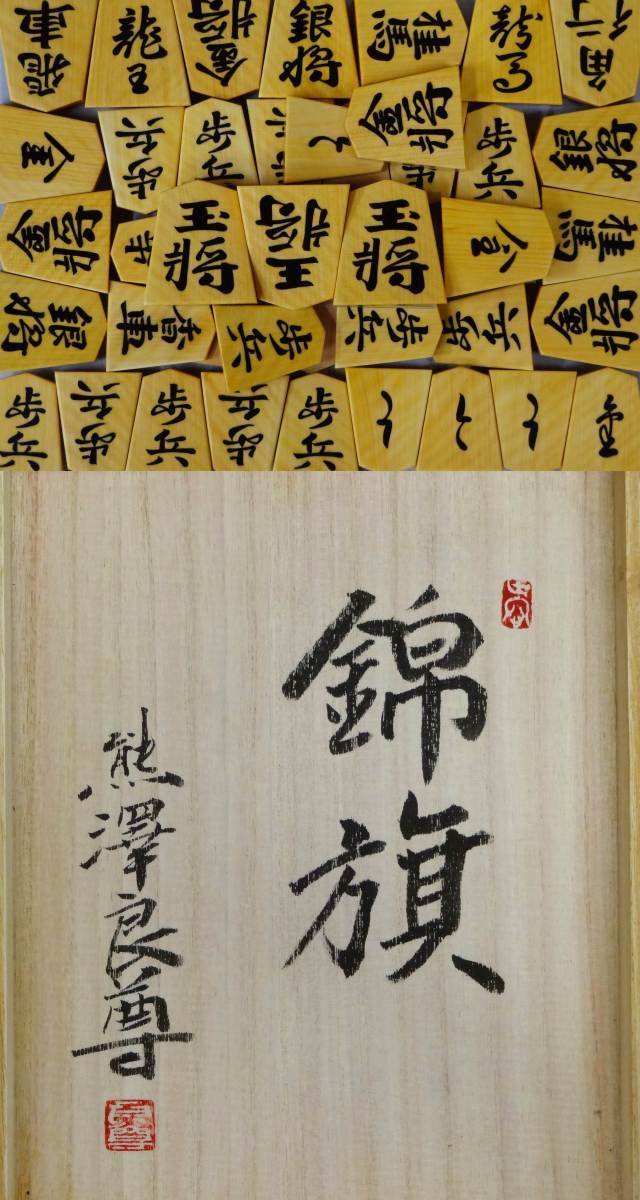 飛車
龍王
金将
銀将
桂馬
龍馬
角行
金
歩兵
歩兵
と
金将
歩兵
銀将
金将
歩
玉将
王将
玉将
金
桂馬
銀将
香車
歩兵
歩兵
歩兵
金将
歩兵
歩兵
歩兵
歩兵
歩兵
と
と
と
錦旗
熊澤良尊